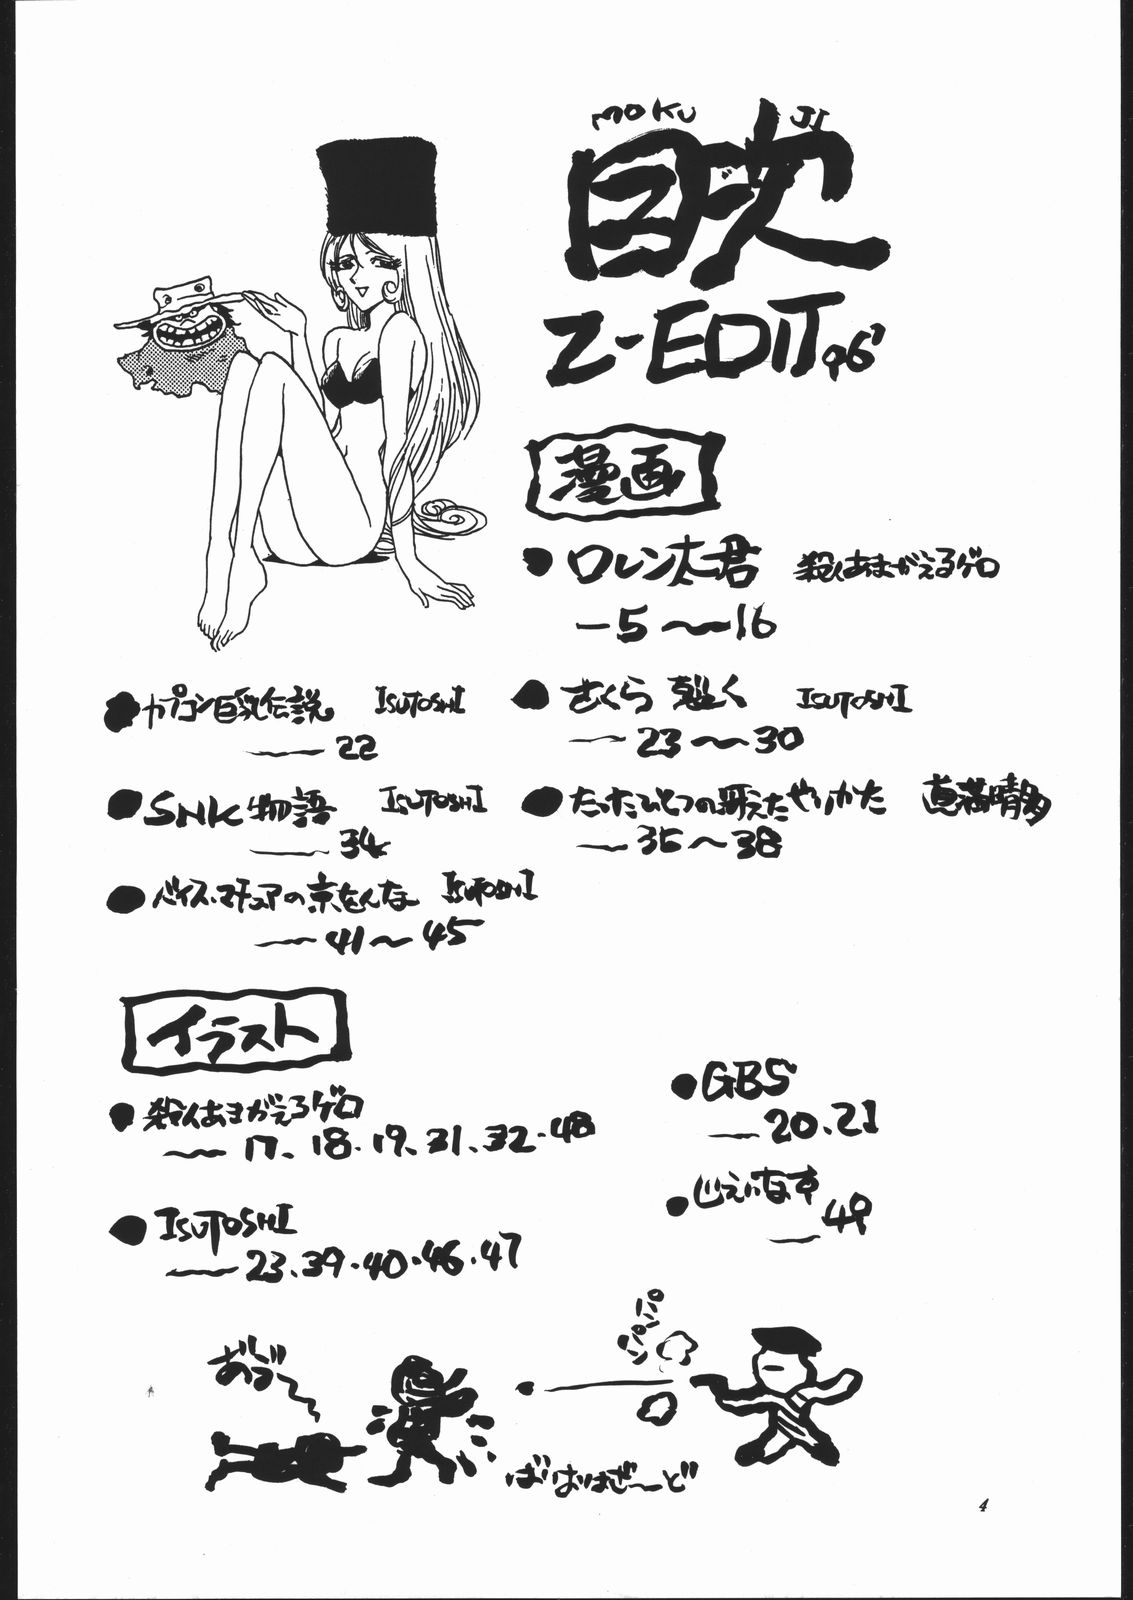 MOKU JI
目次
Z-EDIT 96'
漫画
●ロレン太君 殺人あまがえるゲロ
—5〜16
●さくら 襲く ISUTOSHI
—23〜30
●たったひとつの冴えたやりかた 真満晴多
—35〜38
●カプコン巨乳伝説 ISUTOSHI
—22
●SNK物語 ISUTOSHI
—34
●バイス・マチュアの京をんな ISUTOSHI
—41〜45
イラスト
●殺人あまがえるゲロ
—17、18・19、31、32・48
●ISUTOSHI
—23、39・40・46・47
●GBS
—20、21
●じえいなす
—49
あ゛う゛〜
パパパパン
ばいおはざーど
4